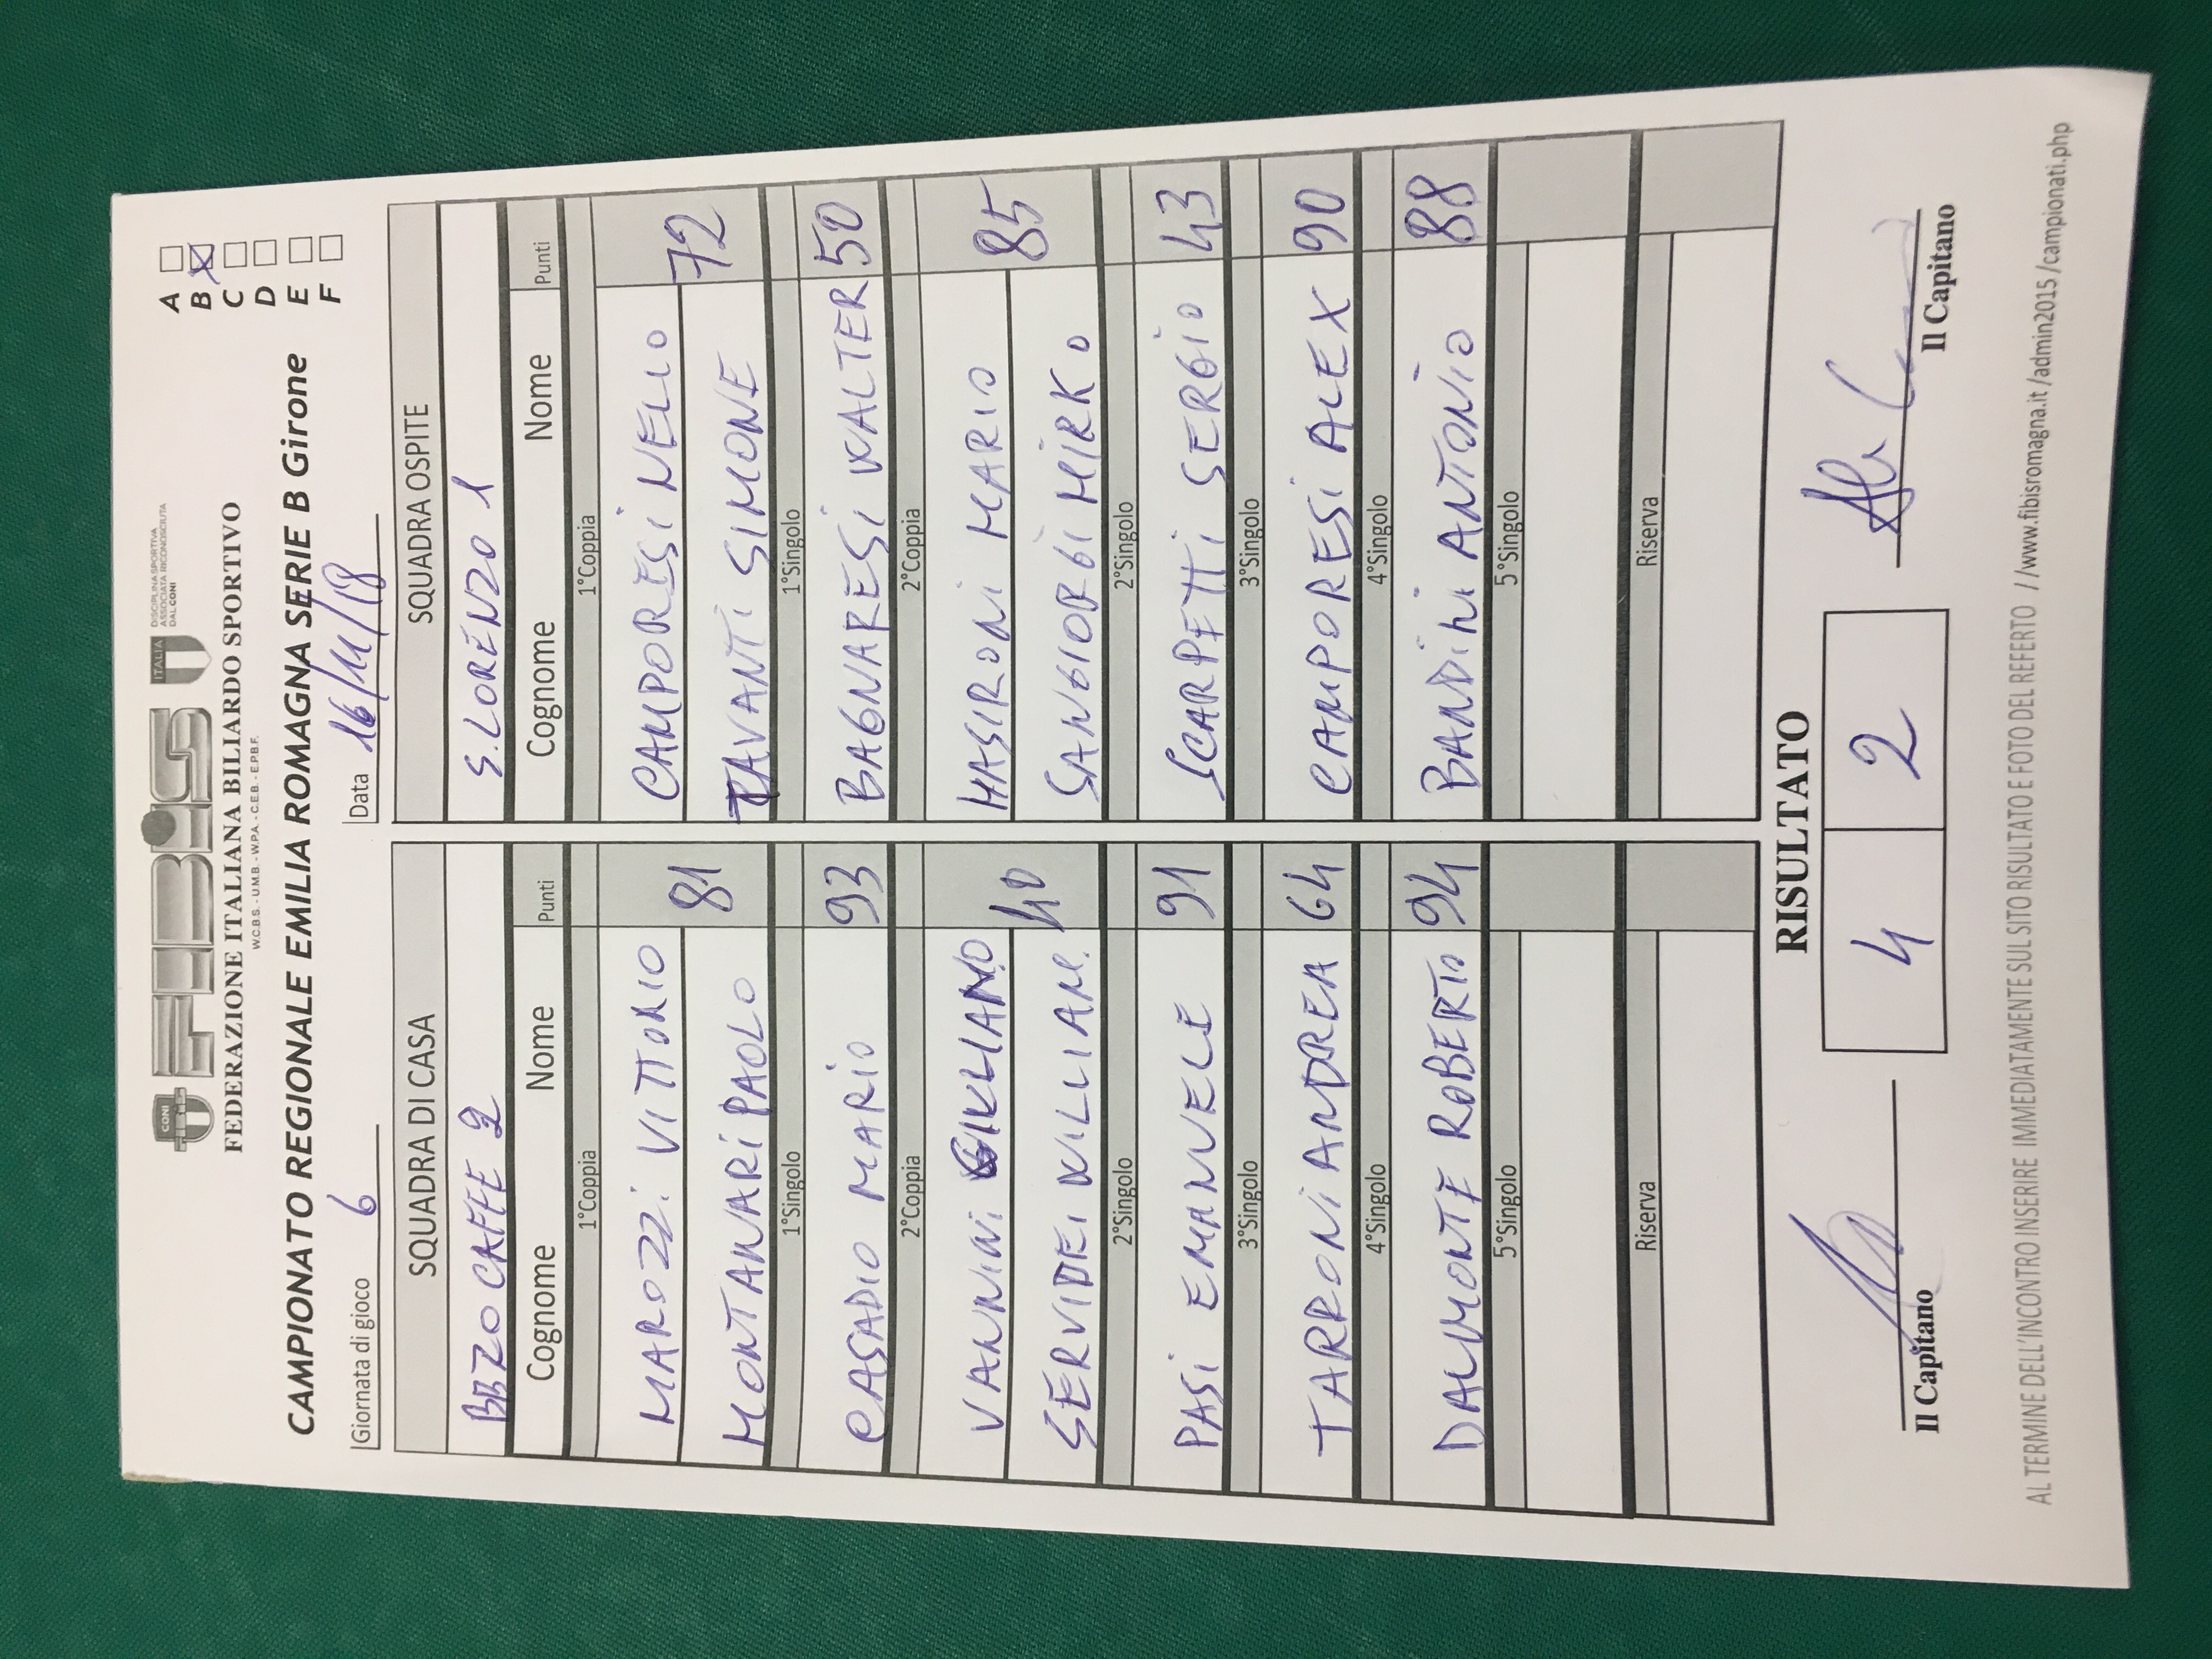 CONI
FIBiS
ITALIA
DISCIPLINA SPORTIVA
ASSOCIATA RICONOSCIUTA
DAL CONI
FEDERAZIONE ITALIANA BILIARDO SPORTIVO
W.C.B.S. - U.M.B. - W.P.A. - C.E.B. - E.P.B.F.
CAMPIONATO REGIONALE EMILIA ROMAGNA SERIE B Girone
A
B X
C
D
E
F
Giornata di gioco 6 Data 16/11/18
SQUADRA DI CASA SQUADRA OSPITE
BBZO CAFFE 2 S.LORENZO 1
Cognome Nome Punti Cognome Nome Punti
1°Coppia 1°Coppia
MAROZZI VITTORIO CAMPORESI NELLO
MONTANARI PAOLO 81 TAVANTI SIMONE 72
1°Singolo 1°Singolo
CASADIO MARIO 93 BAGNARESI WALTER 50
2°Coppia 2°Coppia
VANNINI GIULIANO MASIRONI MARIO
SERVIDEI WILLIAM. 40 SANGIORGI MIRKO 85
2°Singolo 2°Singolo
PASI EMANUELE 91 SCARPETTI SERGIO 43
3°Singolo 3°Singolo
TARRONI ANDREA 64 CAMPORESI ALEX 90
4°Singolo 4°Singolo
DALMONTE ROBERTO 94 BANDINI ANTONIO 88
5°Singolo 5°Singolo
Riserva Riserva
RISULTATO
4 2
Il Capitano Il Capitano
AL TERMINE DELL'INCONTRO INSERIRE IMMEDIATAMENTE SUL SITO RISULTATO E FOTO DEL REFERTO //www.fibisromagna.it /admin2015 /campionati.php